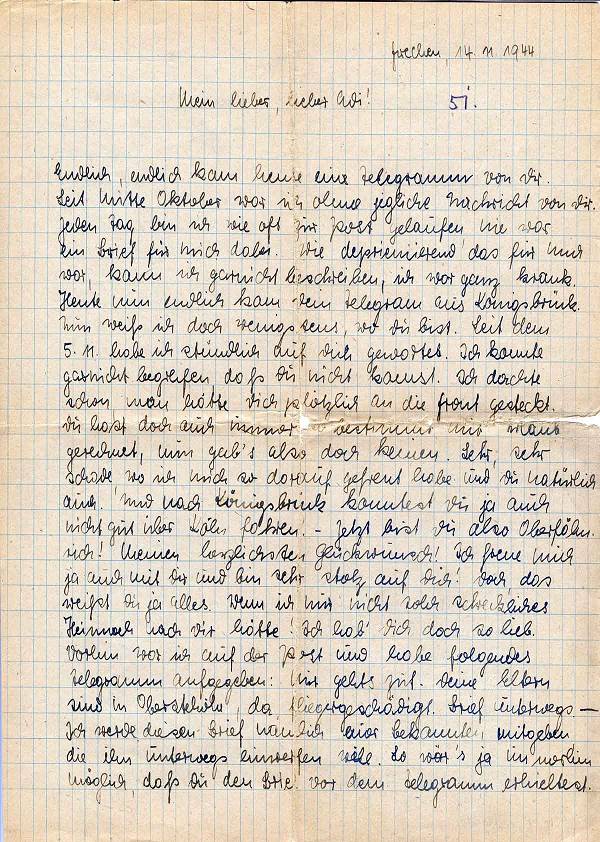 Frechen, 14. 11. 1944
Mein lieber, lieber Adi! 51.
Endlich, endlich kam heute eine Telegramm von dir.
Seit Mitte Oktober war ich ohne jegliche Nachricht von dir.
Jeden Tag bin ich wie oft zur Post gelaufen nie war
ein Brief für mich dabei. Wie deprimierend das für mich
war, kann ich garnicht beschreiben, ich war ganz krank.
Heute nun endlich kam dein Telegram aus Königsbrück.
Nun weiß ich doch wenigstens, wo du bist. Seit dem
5. 11. habe ich stündlich auf dich gewartet. Ich konnte
garnicht begreifen, daß du nicht kamst. Ich dachte
schon man hätte dich plötzlich an die Front gesteckt.
Du hast doch auch immer so bestimmt mit Urlaub
gerechnet, nun gab's also doch keinen. Sehr, sehr
schade wo ich mich so darauf gefreut habe und du natürlich
auch. Und nach Königsbrück konntest du ja auch
nicht gut über Köln fahren. - Jetzt bist du also Oberfähn-
rich! Meinen herzlichsten Glückwunsch! Ich freue mich
ja auch mit dir und bin sehr stolz auf dich! Doch, das
weißt du ja alles. Wenn ich nur nicht solch schreckliches
Heimweh nach dir hätte! Ich hab' dich doch so lieb.
Vorhin war ich auf der Post und habe folgendes
Telegramm aufgegeben: Mir gehts gut. Deine Eltern
sind in da fliegergeschädigt. Brief unterwegs —
Ich werde diesen Brief nämlich hier Bekannten mitgeben
die ihn unterwegs einwerfen So wär's ja immerhin
möglich, daß du den Brief vor dem Telegramm erhieltest.